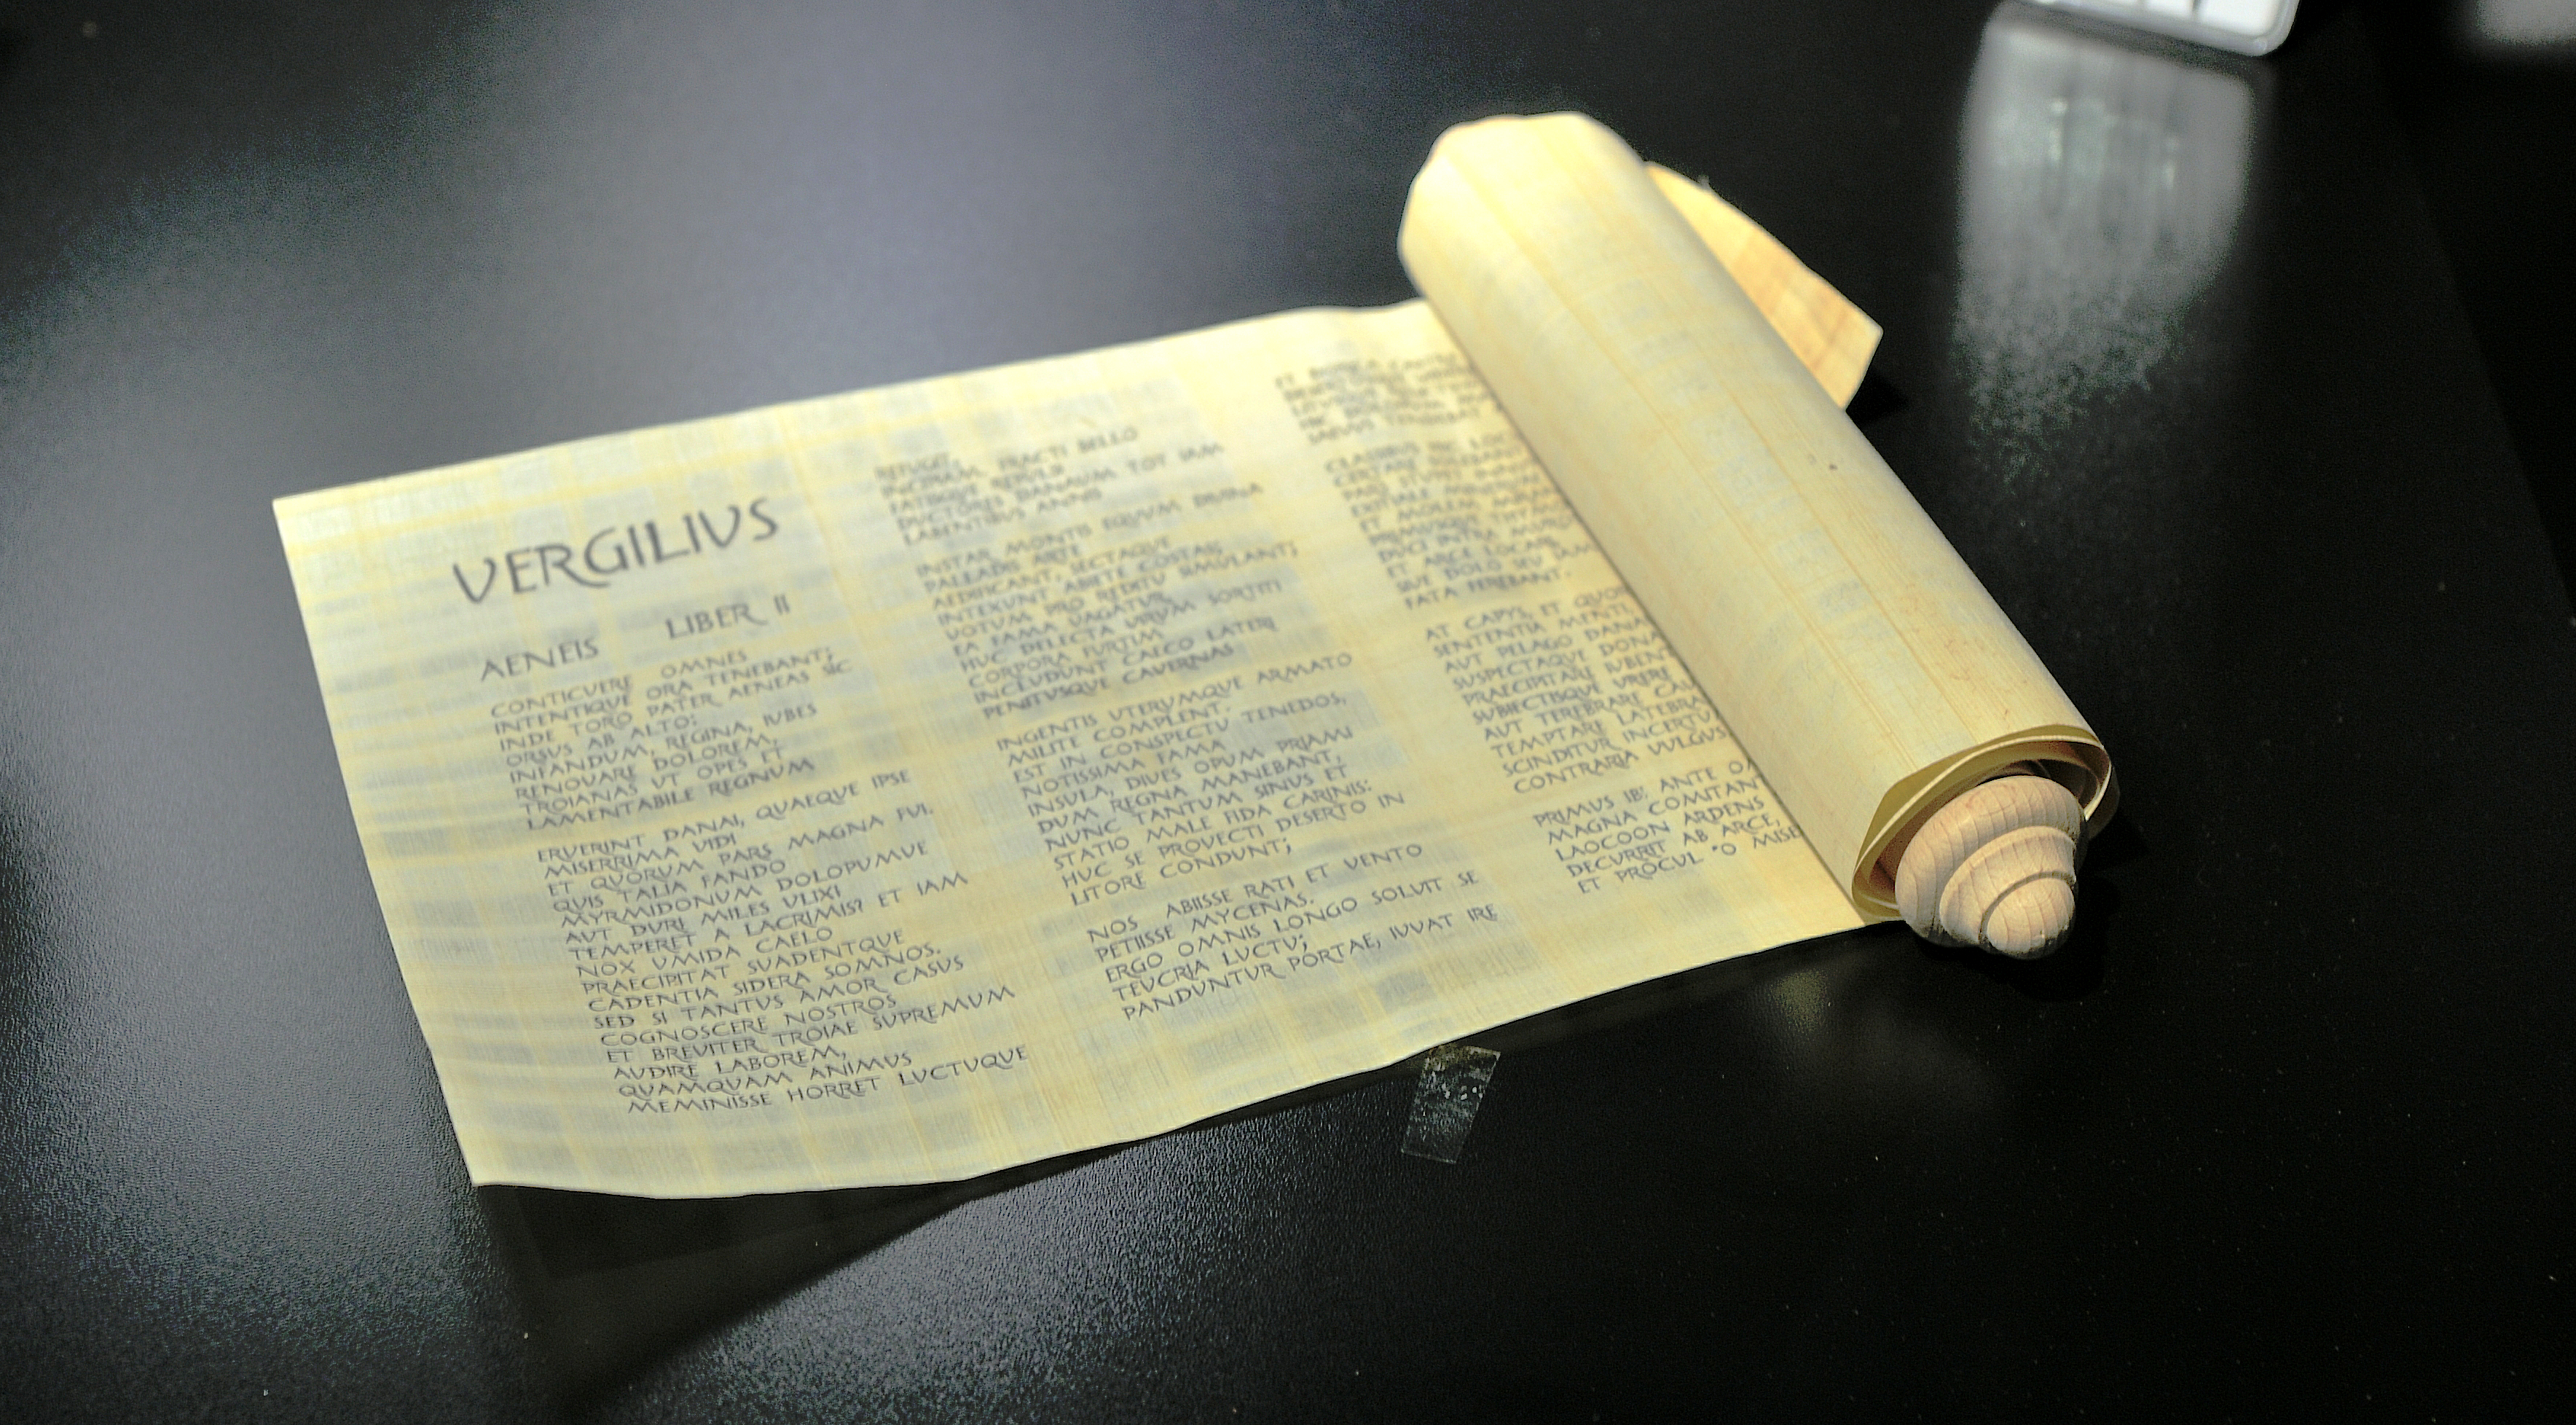 VERGILIVS
AENEIS LIBER II
CONTICVERE OMNES
INTENTIQVE ORA TENEBANT;
INDE TORO PATER AENEAS SIC
ORSUS AB ALTO:
INFANDUM, REGINA, IUBES
RENOVARE DOLOREM,
TROIANAS UT OPES ET
LAMENTABILE REGNUM
ERVERINT DANAI, QUAEQVE IPSE
MISERRIMA VIDI
ET QUORUM PARS MAGNA FUI.
QUIS TALIA FANDO
MYRMIDONUM DOLOPUMVE
AUT DURI MILES VLIXI
TEMPERET A LACRIMIS? ET IAM
NOX UMIDA CAELO
PRAECIPITAT SUADENTQUE
CADENTIA SIDERA SOMNOS.
SED SI TANTUS AMOR CASUS
COGNOSCERE NOSTROS
ET BREVITER TROIAE SUPREMUM
AUDIRE LABOREM,
QUAMQUAM ANIMUS
MEMINISSE HORRET LVCTUQUE
REFUGIT,
INCIPIAM. FRACTI BELLO
FATISQUE REPULSI
DVCTORES DANAUM TOT IAM
LABENTIBUS ANNIS
INSTAR MONTIS EQUUM DIVINA
PALLADIS ARTE
AEDIFICANT, SECTAQUE
INTEXUNT ABIETE COSTAS;
VOTUM PRO REDITU SIMULANT;
EA FAMA VAGATUR.
HUC DELECTA VIRUM SORTITI
CORPORA FURTIM
INCLUDUNT CAECO LATERI
PENITUSQUE CAVERNAS
INGENTIS UTERUMQUE ARMATO
MILITE COMPLENT.
EST IN CONSPECTU TENEDOS,
NOTISSIMA FAMA
INSULA, DIVES OPUM PRIAMI
DUM REGNA MANEBANT,
NUNC TANTUM SINUS ET
STATIO MALE FIDA CARINIS:
HUC SE PROVECTI DESERTO IN
LITORE CONDUNT;
NOS ABIISSE RATI ET VENTO
PETIISSE MYCENAS.
ERGO OMNIS LONGO SOLUIT SE
TEVCRIA LUCTU;
PANDUNTUR PORTAE, IUVAT IRE
ET DORICA
HIC
SAEVUS TENDEBAT
CLASSIBUS HIC LOC
CERTARE
PARS STUPET
EXITIALE
ET MOLEM
PRIMUSQUE
DUCI INTRA MUROS
ET ARCE LOCARI,
SIVE DOLO SEU IAM
FATA FEREBANT.
AT CAPYS, ET QUOR
SENTENTIA MENTI,
AUT PELAGO DANA
SUSPECTAQUE DONA
PRAECIPITARE IUBENT
SUBIECTISQUE URERE
AUT TEREBRARE CAU
TEMPTARE LATEBRA
SCINDITUR INCERTU
CONTRARIA VULGUS.
PRIMUS IBI ANTE O
MAGNA COMITANT
LAOCOON ARDENS
DECURRIT AB ARCE,
ET PROCUL "O MISE